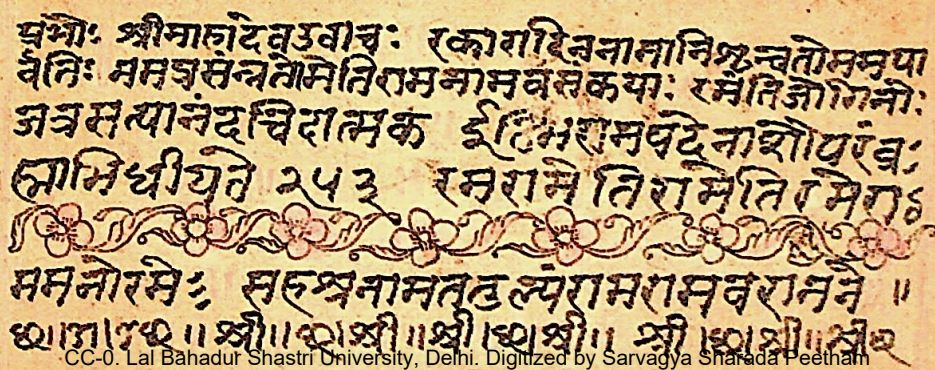 प्रभोः श्रीमाहादेवउवाचः रकारादिननामानिशृन्वतोममपा
र्वतिः ममप्रसंन्नतामेतिरामनामवसंकयाः रमंतिजोगिनोः
जत्रसत्यानंदचिदात्मक ईतिमरामपदेनाशौपरंव्रः
ह्माभिधीयते २५३ रमरामेतिरामेतिरमेराः
ममनोरमेः सहश्रनामततुल्यंरामरामवरानने ॥
॥ श्री॥ छ।श्री ॥श्री।छ।श्री॥ श्री।छ।श्री॥श्री२
CC-0. Lal Bahadur Shastri University, Delhi. Digitized by Sarvagya Sharada Peetham